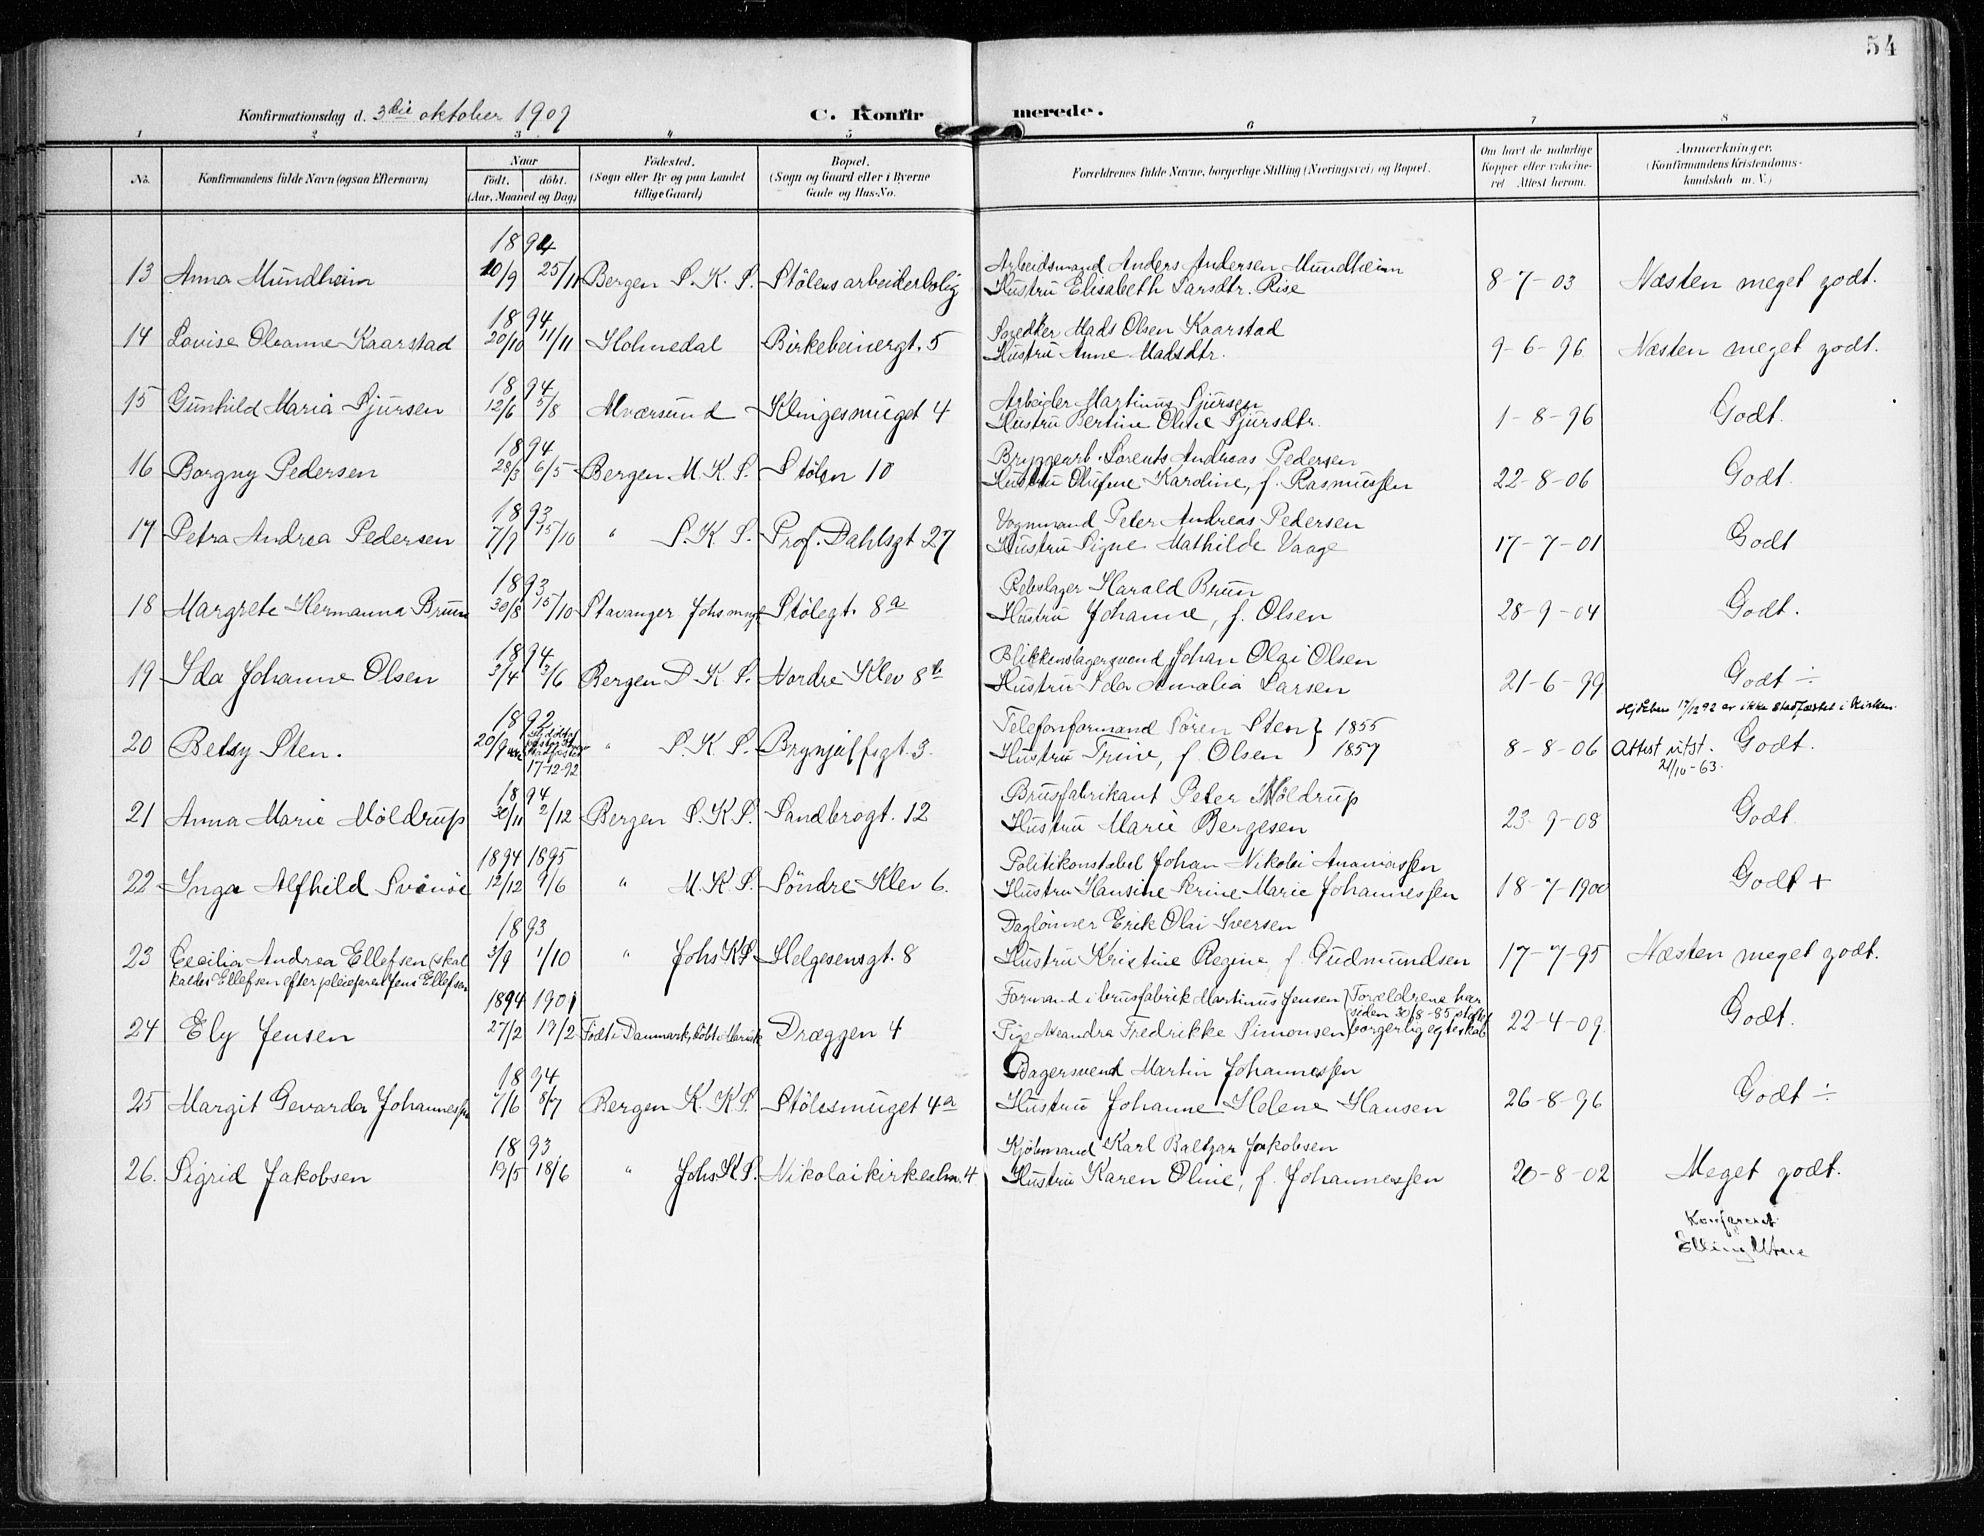 54
Konfirmationsdag d. 3die oktober 1909
C. Konfirmerede.
1 2 3 4 5 6 7 8
No. Konfirmandens fulde Navn (ogsaa Efternavn) Naar født. døbt. (Aar, Maaned og Dag) Fødested. (Sogn eller By og paa Landet tillige Gaard) Bopæl. (Sogn og Gaard eller i Byerne Gade og Hus-No. Forældrenes fulde Navne, borgerlige Stilling (Næringsvei) og Bopæl. Om havt de naturlige Kopper eller vakcineret Attest herom. Anmærkninger. (Konfirmandens Kristendomskundskab m. V.)
1894
Arbeidsmand Anders Andersen Mundheim
13 Anna Mundheim 10/9 25/11 Bergen S. K. S. Stølens arbeiderbolig Hustru Elisabeth Larsdtr. Rise 8-7-03 Næsten meget godt.
1894
Mads Olsen Kaarstad
14 Lovise Oleanne Kaarstad 20/10 11/11 Holmedal Birkebeinergt. 5 Hustru Anne Madsdtr. 9-6-96 Næsten meget godt.
1894
Arbeider Martinus Sjursen
15 Gunhild Maria Sjursen 12/6 5/8 Alværsund Klingesmuget 4 Hustru Bertine Oline Sjursdtr. 1-8-96 Godt.
1894
Bryggearb. Lorents Andreas Pedersen
16 Borgny Pedersen 28/3 6/5 Bergen M. K. S. Stølen 10 Hustru Olufine Karoline, f. Rasmussen 22-8-06 Godt.
1893
Vognmand Peter Andreas Pedersen
17 Petra Andrea Pedersen 7/9 15/10 " S. K. S. Prof. Dahlsgt 27 Hustru Signe Mathilde Vaage 17-7-01 Godt
1893
Rebslager Harald Brun
18 Margrete Hermanna Brun 30/8 15/10 Stavanger Johs mngt Stølegt. 8a Hustru Johanne, f. Olsen 28-9-04 Godt.
1894
Blikkenslagersvend Johan Olai Olsen
19 Ida Johanne Olsen 3/4 3/6 Bergen D. K. S. Nordre Klev 8b Hustru Ida Amalia Larsen 21-6-99 Godt ÷
Hj.deben 17/12 92 er ikke stadfæstet i kirken.
1892
Telefonformand Søren Sten } 1855
20 Betsy Sten. 20/9 17-12-92 " S. K. S. Brynjulfsgt. 3. Hustru Trine, f. Olsen } 1857 8-8-06 Attest utst. 21/10-63. Godt.
1894
Brusfabrikant Peter Möldrup
21 Anna Marie Möldrup 30/11 2/12 Bergen S. K. S. Sandbrogt. 12 Hustru Marie Bergesen 23-9-08 Godt.
1894 1895
Politikonstabel Johan Nikolai Ananiassen
22 Inga Alfhild Svinøe 12/12 9/6 " M. K. S. Søndre Klev 6. Hustru Hansine Serine Marie Johannessen 18-7-1900 Godt +
1893
Dagløinner Erik Olai Iversen
23 Cecilia Andrea Ellefsen (skal 3/9 1/10 " Johs K S. Helgesensgt. 8 Hustru Kristine Regine, f. Gudmundsen 17-7-95 Næsten meget godt.
kaldes Ellefsen efter pleiefaren Jens Ellefsen
1894 1901
Formand i brusfabrik Martinus Jensen } Forældrene har siden 30/8-85 stiftet
24 Ely Jensen 27/2 17/2 Født i Danmark, døbt i Mariæk Dræggen 4 Pige Fredrikke Simonsen } borgerlig egteskab 22-4-09 Godt.
1894
Bagersvend Martin Johannessen
25 Margit Gevarda Johannessen 7/6 8/7 Bergen K. K. S. Stølesmuget 4a Hustru Johanne Helene Hansen 26-8-96 Godt ÷
1893
Kjøbmand Karl Baltzar Jakobsen
26. Sigrid Jakobsen 19/5 18/6 " Johs K S. Nikolaikirkealm. 4 Hustru Karen Oline, f. Johannessen 20-8-02 Meget godt.
Konfereret
Elling